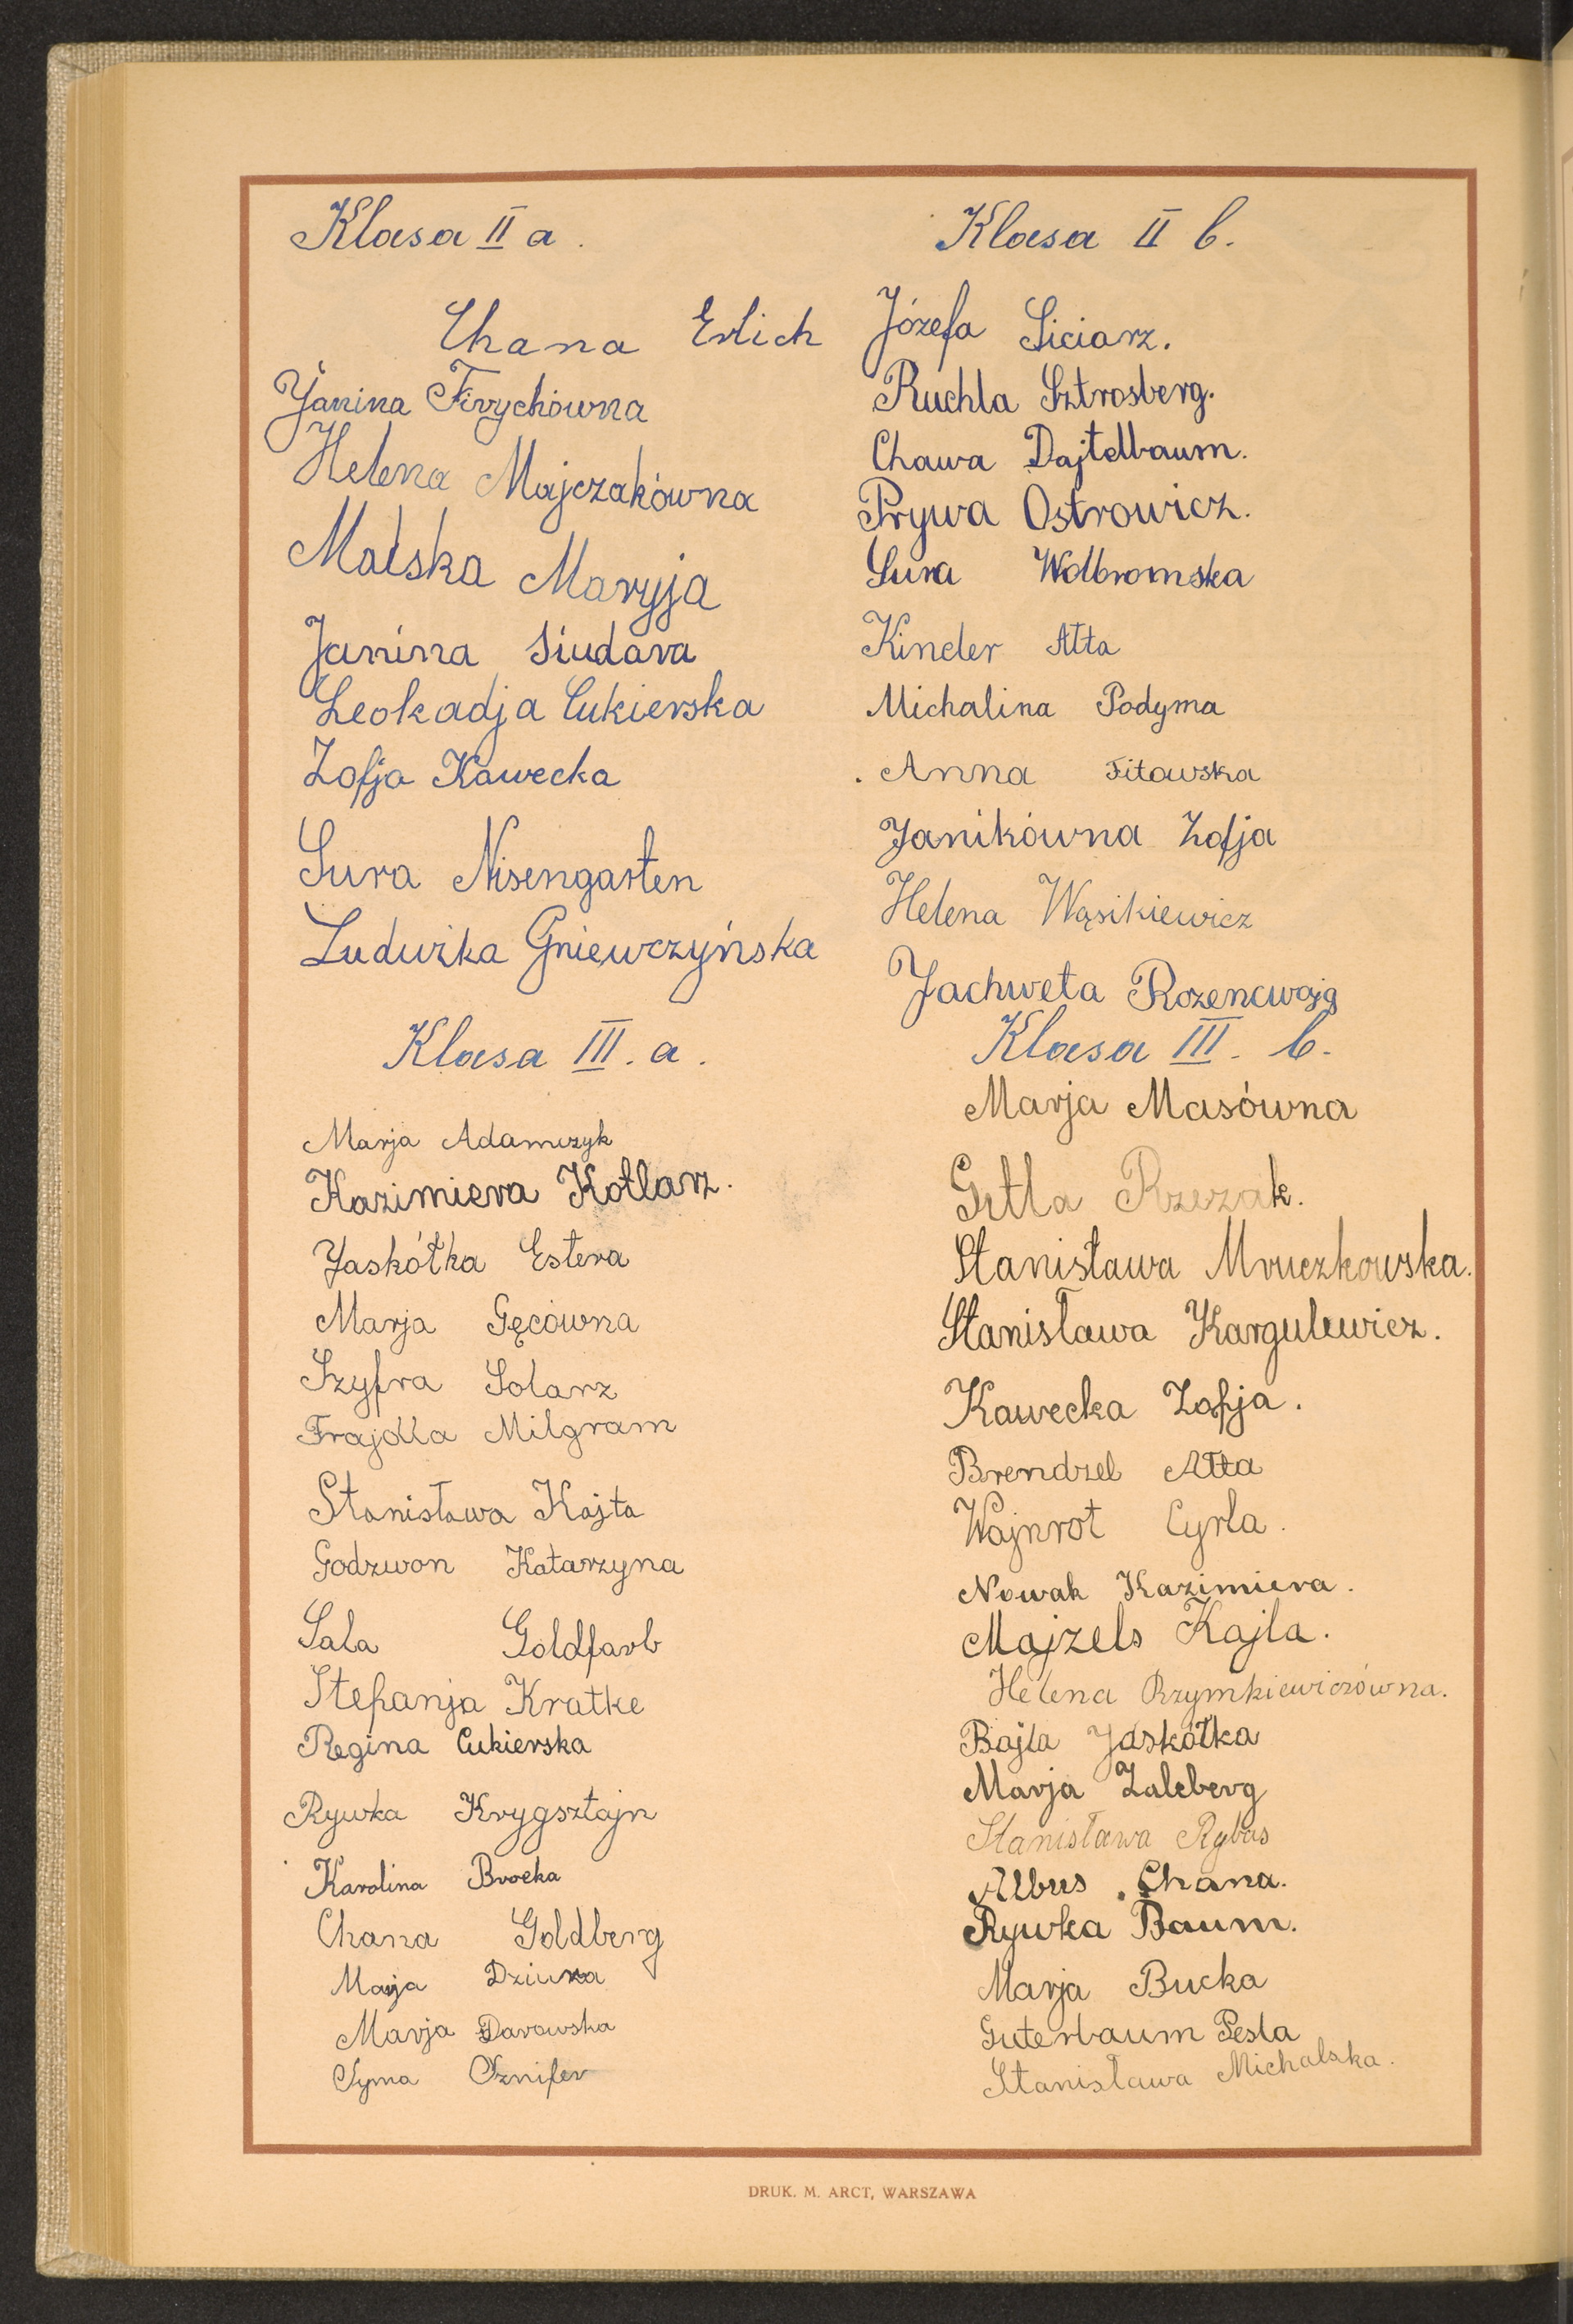 Klasa II a.
Chana Erlich
Janina Firychówna
Helena Majczakówna
Malska Maryja
Janina Siudara
Leokadja Cukierska
Zofja Kawecka
Sura Nisengarten
Ludwika Gniewczyńska
Klasa II b.
Józefa Siciarz.
Ruchla Sztrosberg.
Chawa Dajtelbaum.
Prywa Ostrowicz.
Sura Wolbromska
Kinder Ałta
Michalina Podyma
Anna Fitawska
Janikówna Zofja
Helena Wąsikiewicz
Jachweta Rozencwajg
Klasa III. a.
Marja Adamczyk
Kazimiera Kotlarz.
Jaskółka Estera
Marja Gęcówna
Szyfra Solarz
Frajdla Milgram
Stanisława Kajta
Godzwon Katarzyna
Sala Goldfarb
Stefanja Kratke
Regina Cukierska
Rywka Krygsztajn
Karolina Brocka
Chana Goldberg
Marja Dziura
Marja Darowska
Syma Sznifer
Klasa III. b.
Marja Masówna
Gitla Rzezak.
Stanisława Mruczkowska.
Stanisława Kargulewicz.
Kawecka Zofja.
Brendzel Ałta
Wajnrot Cyrla.
Nowak Kazimiera.
Majzels Kajla.
Helena Rzymkiewiczówna.
Bajla Jaskółka
Marja Zaleberg
Stanisława Rybus
Albus Chana.
Rywka Baum.
Marja Bucka
Guterbaum Pesla
Stanisława Michalska.
DRUK. M. ARCT, WARSZAWA